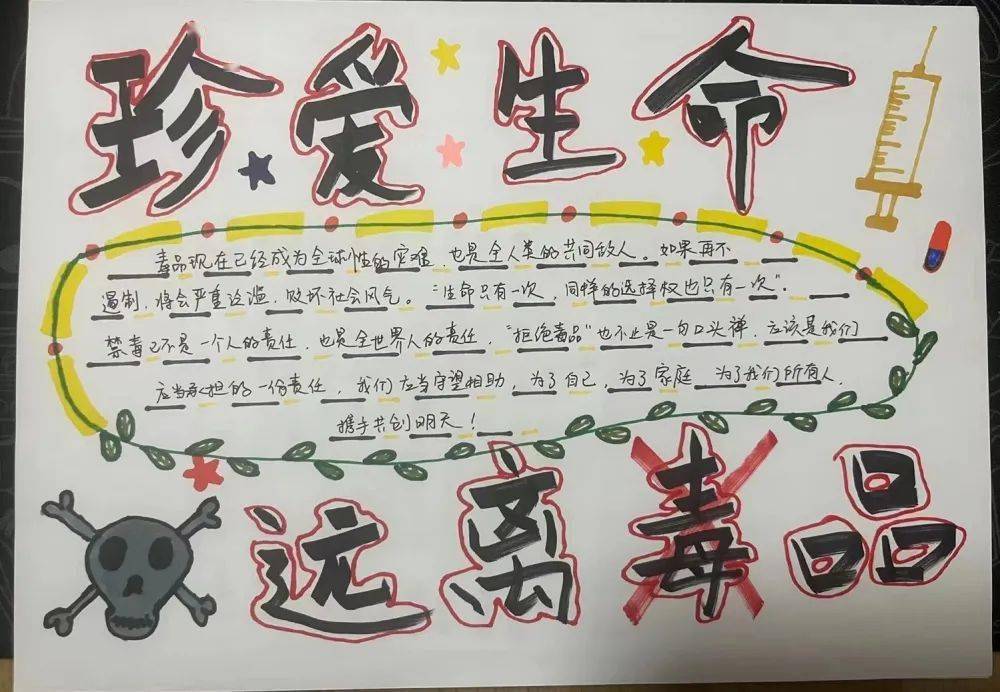 珍爱生命
毒品现在已经成为全球性的灾难，也是全人类的共同敌人。如果再不
遏制，将会严重泛滥，败坏社会风气。“生命只有一次，同样的选择权也只有一次”．
禁毒已不是一个人的责任，也是全世界人的责任，“拒绝毒品”也不止是一句口头禅，应该是我们
应当承担的一份责任，我们应当守望相助，为了自己，为了家庭 为了我们所有人．
携手共创明天！
远离毒品